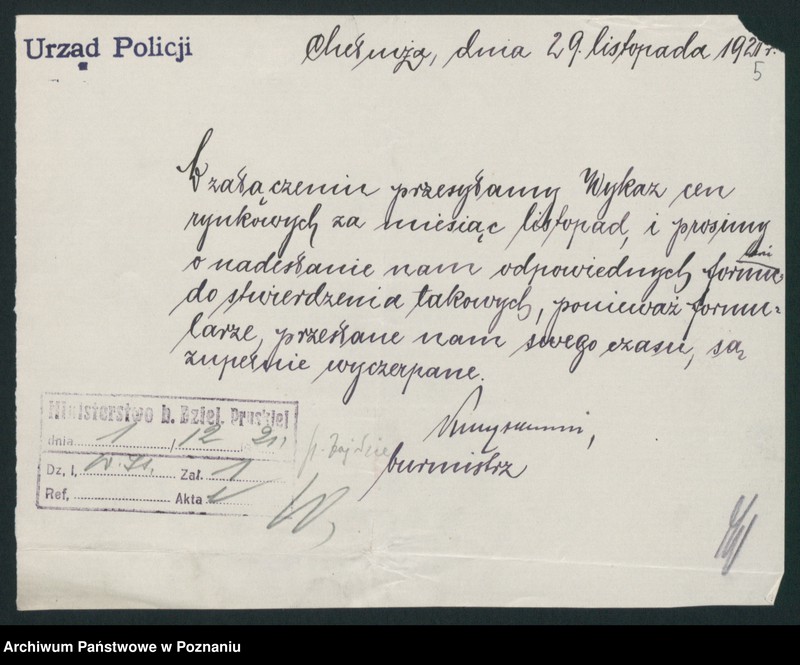 Urząd Policji
Chełmża, dnia 29. listopada 1921 r.
5
W załączeniu przesyłamy Wykaz cen
rynkowych za miesiąc listopad, i prosimy
o nadesłanie nam odpowiednych formu-
larzi
do stwierdzenia takowych, ponieważ formu-
larze, przesłane nam swego czasu, są
zupełnie wyczerpane.
burmistrz
Ministerstwo b. Dziel. Pruskiej
dnia 1, 12 21
Dz. I, Zał. 1
Ref. Akta
Archiwum Państwowe w Poznaniu